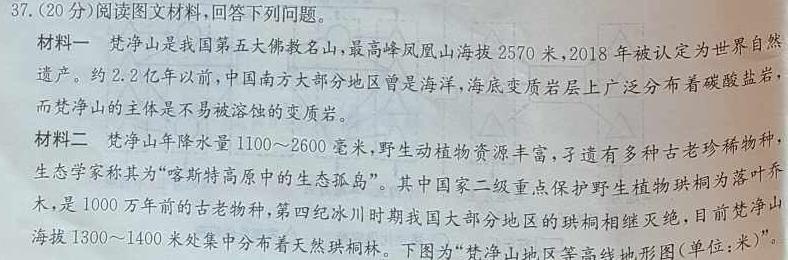 37.(20分)阅读图文材料,回答下列问题。
材料一 梵净山是我国第五大佛教名山,最高峰凤凰山海拔2570米,2018年被认定为世界自然
遗产。约2.2亿年以前,中国南方大部分地区曾是海洋,海底变质岩层上广泛分布着碳酸盐岩,
而梵净山的主体是不易被溶蚀的变质岩。
材料二 梵净山年降水量1100~2600毫米,野生动植物资源丰富,孑遗有多种古老珍稀物种,
生态学家称其为“喀斯特高原中的生态孤岛”。其中国家二级重点保护野生植物珙桐为落叶乔
木,是1000万年前的古老物种,第四纪冰川时期我国大部分地区的珙桐相继灭绝,目前梵净山
海拔1300~1400米处集中分布着天然珙桐林。下图为“梵净山地区等高线地形图(单位:米)”。